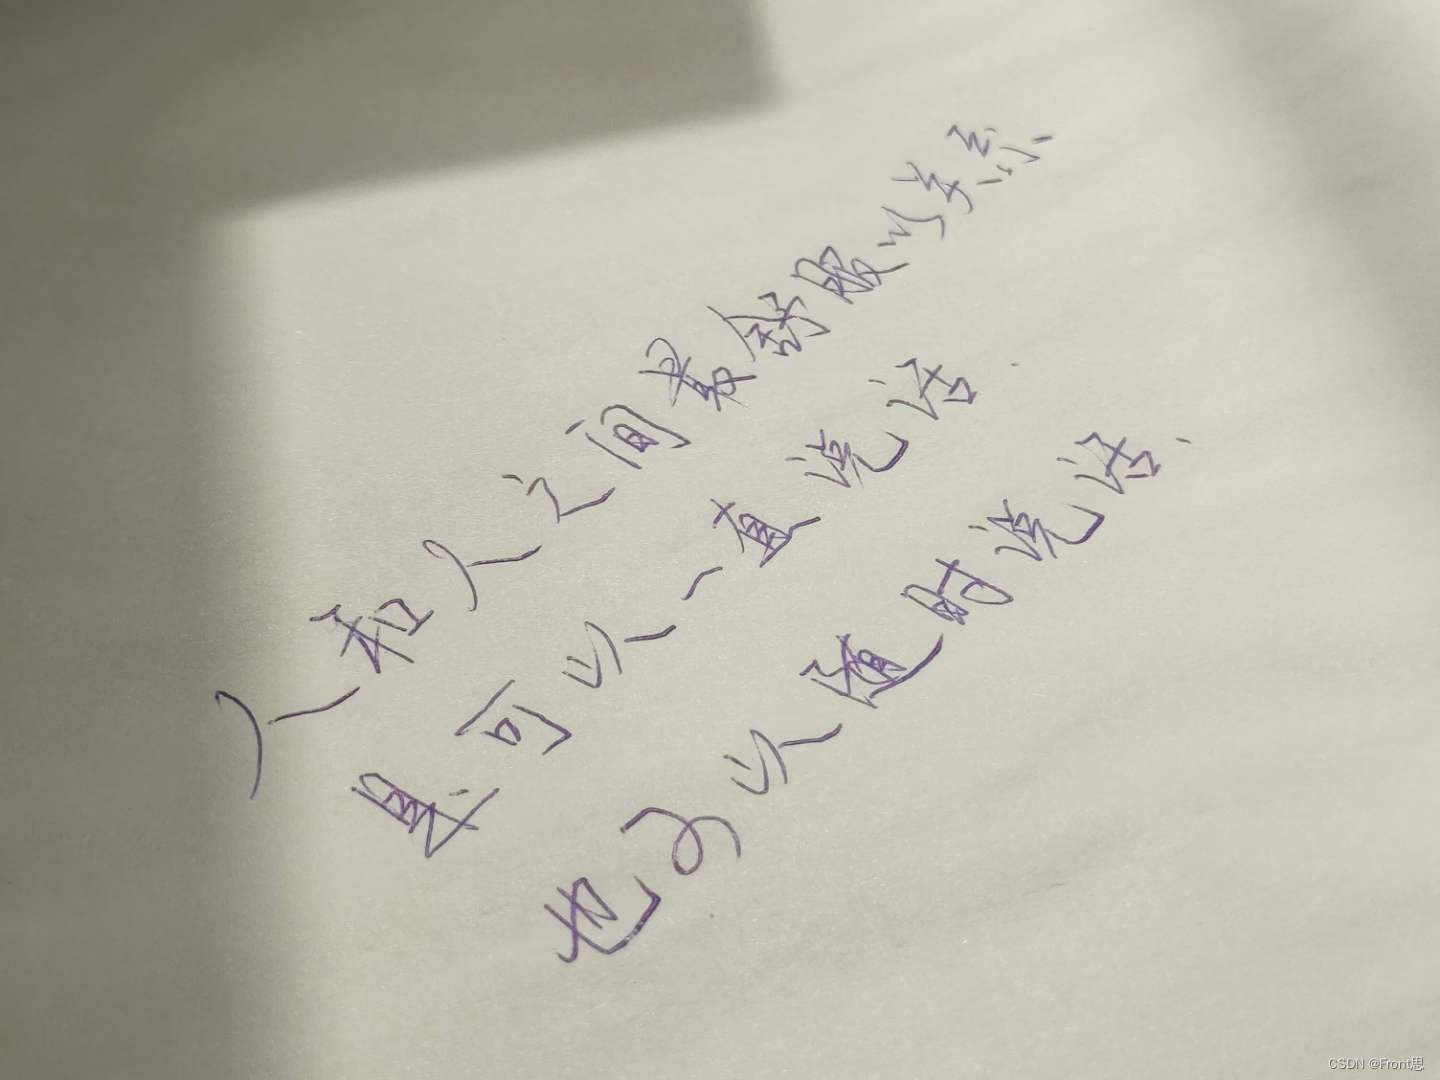 人和人之间最舒服的关系
是可以一直说话.
也可以随时说话.
CSDN @Front思